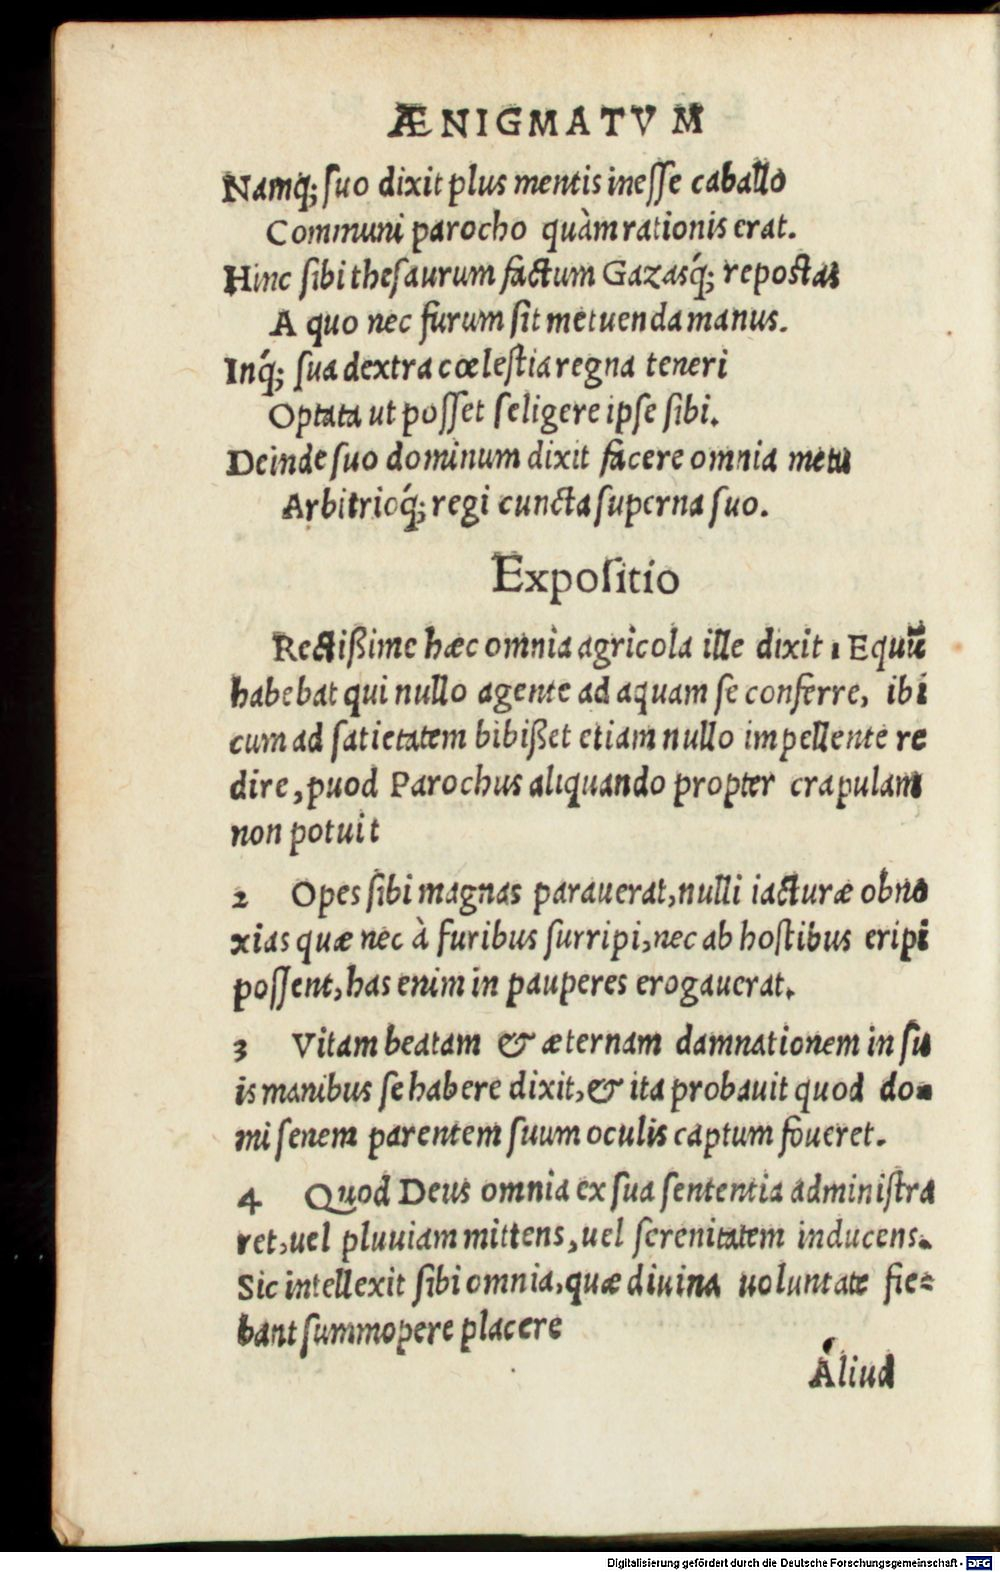 ÆNIGMATVM
Namq́; ſuo dixit plus mentis ineſſe caballo
Communi parocho quàm rationis erat.
Hinc ſibi theſaurum factum Gazasq́; repostas
A quo nec furum ſit metuenda manus.
Inq́; ſua dextra cœleſtia regna teneri
Optata ut poſſet ſeligere ipſe ſibi.
Deinde ſuo dominum dixit facere omnia metu
Arbitrioq́; regi cuncta ſuperna ſuo.
Expoſitio
Rectißime hæc omnia agricola ille dixit 1 Equũ
habebat qui nullo agente ad aquam ſe conferre, ibi
cum ad ſatietatem bibißet etiam nullo impellente re
dire, puod Parochus aliquando propter crapulam
non potuit
2 Opes ſibi magnas parauerat, nulli iacturæ obno
xias quæ nec à furibus ſurripi, nec ab hoſtibus eripi
poſſent, has enim in pauperes erogauerat.
3 Vitam beatam & æternam damnationem in ſu
is manibus ſe habere dixit, & ita probauit quod do-
mi ſenem parentem ſuum oculis captum foueret.
4 Quod Deus omnia ex ſua ſententia adminiſtra
ret, uel pluuiam mittens, uel ſerenitatem inducens.
Sic intellexit ſibi omnia, quæ diuina uoluntate fie-
bant ſummopere placere
Aliud
Digitalisierung gefördert durch die Deutsche Forschungsgemeinschaft - DFG